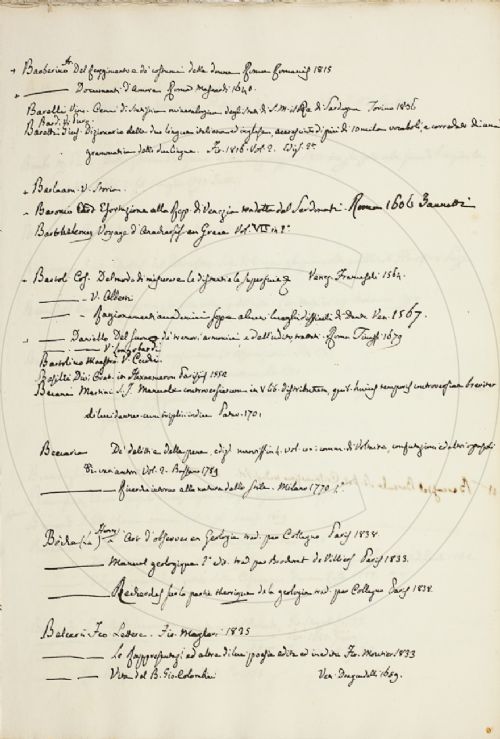 + Barberino Del Reggimento e de' costumi delle donne Roma Romanis 1815
——— Documenti d'Amore Roma Mascardi 1640.
Barelli Vinc. Cenni di Statistica mineralogica degli Stati di S. M. il Re di Sardegna Torino 1835
Baretti Gius. Dizionario delle due lingue italiana ed inglese, accresciuto di più di 10 mila vocaboli, e corredato di una
grammatica delle due lingue. Fir. 1816. Vol. 2. Ediz. 2ª
+ Barlaam. v. Storia.
+ Baronio Esortazione alla Repp. di Venezia tradotta dal Serdonati. Roma 1606 Zannetti
Barthelemy Voyage d'Anacharsis en Grece Vol. VII in 8º
+ Bartoli Cos. Del modo di misurare le distantie le superficie Venez. Franceschi 1564.
——— v. Alberti
——— Ragionamenti accademici sopra alcuni luoghi difficili di Dante Ven. 1567.
+ ——— Daniello Del suono de' tremori armonici e dell'udito trattati. Roma 1679
——— v. Longobardi
Bartolino Maestro v. Crudi.
Basilii Div. in Hexaemeron Parisiis 1552
Becani Martini S. J. Manuale controversiarum in V lib. distributum, quib. huius temporis controversiae breviter
dilucidantur cum triplici indice 1701
Beccaria De' delitti e delle pene, vol. coi comm. di Voltaire, confutazioni ed altri opuscoli
di vari autori Vol. 2. Bassano 1789
——— Ricerche intorno alla natura dello stile. Milano 1770
Bêche (La) Henry Art d'observer en Geologie trad. par Collegno Paris 1838.
——— Manuel geologique 2ª ed. trad. par Brochant de Villiers Paris 1833.
——— Recherches sur la partie theorique de la geologie trad. par Collegno Paris 1838.
Belcari Feo Lettere. Fir. Magheri 1825
——— Le Rappresentazioni ed altre di lui poesie edite ed inedite Fir. Moutier 1833
——— Vita del B. Gio. Colombini Ven.